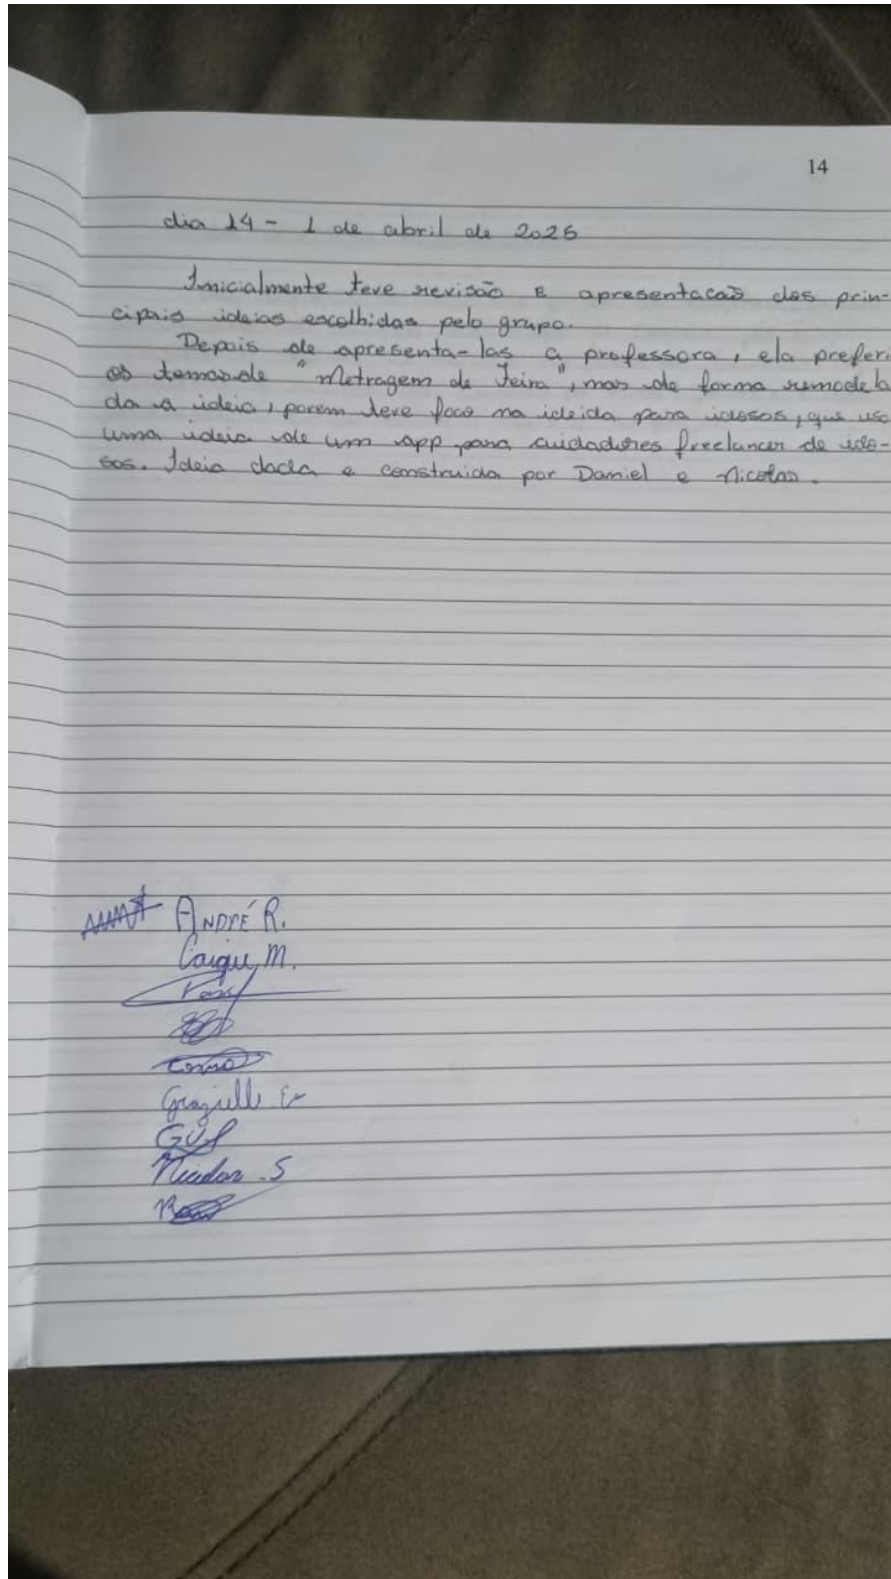 14
dia 14 - 1 de abril de 2025
Inicialmente teve revisão e apresentacaõ das prin-
cipais ideias escolhidas pelo grupo.
Depois de apresenta-las a professora, ela preferi
os temas de "Metragem de Feira", mas de forma remodela
da a ideia, porem teve foco na icleida para idosos, que usa
uma ideia de um app para cuidadores freelancer de ido-
sos. Ideia dada e construida por Daniel e Nicolas.
ANDRÉ R.
Caique M.
Grazielle
GUS
Nicolas .S